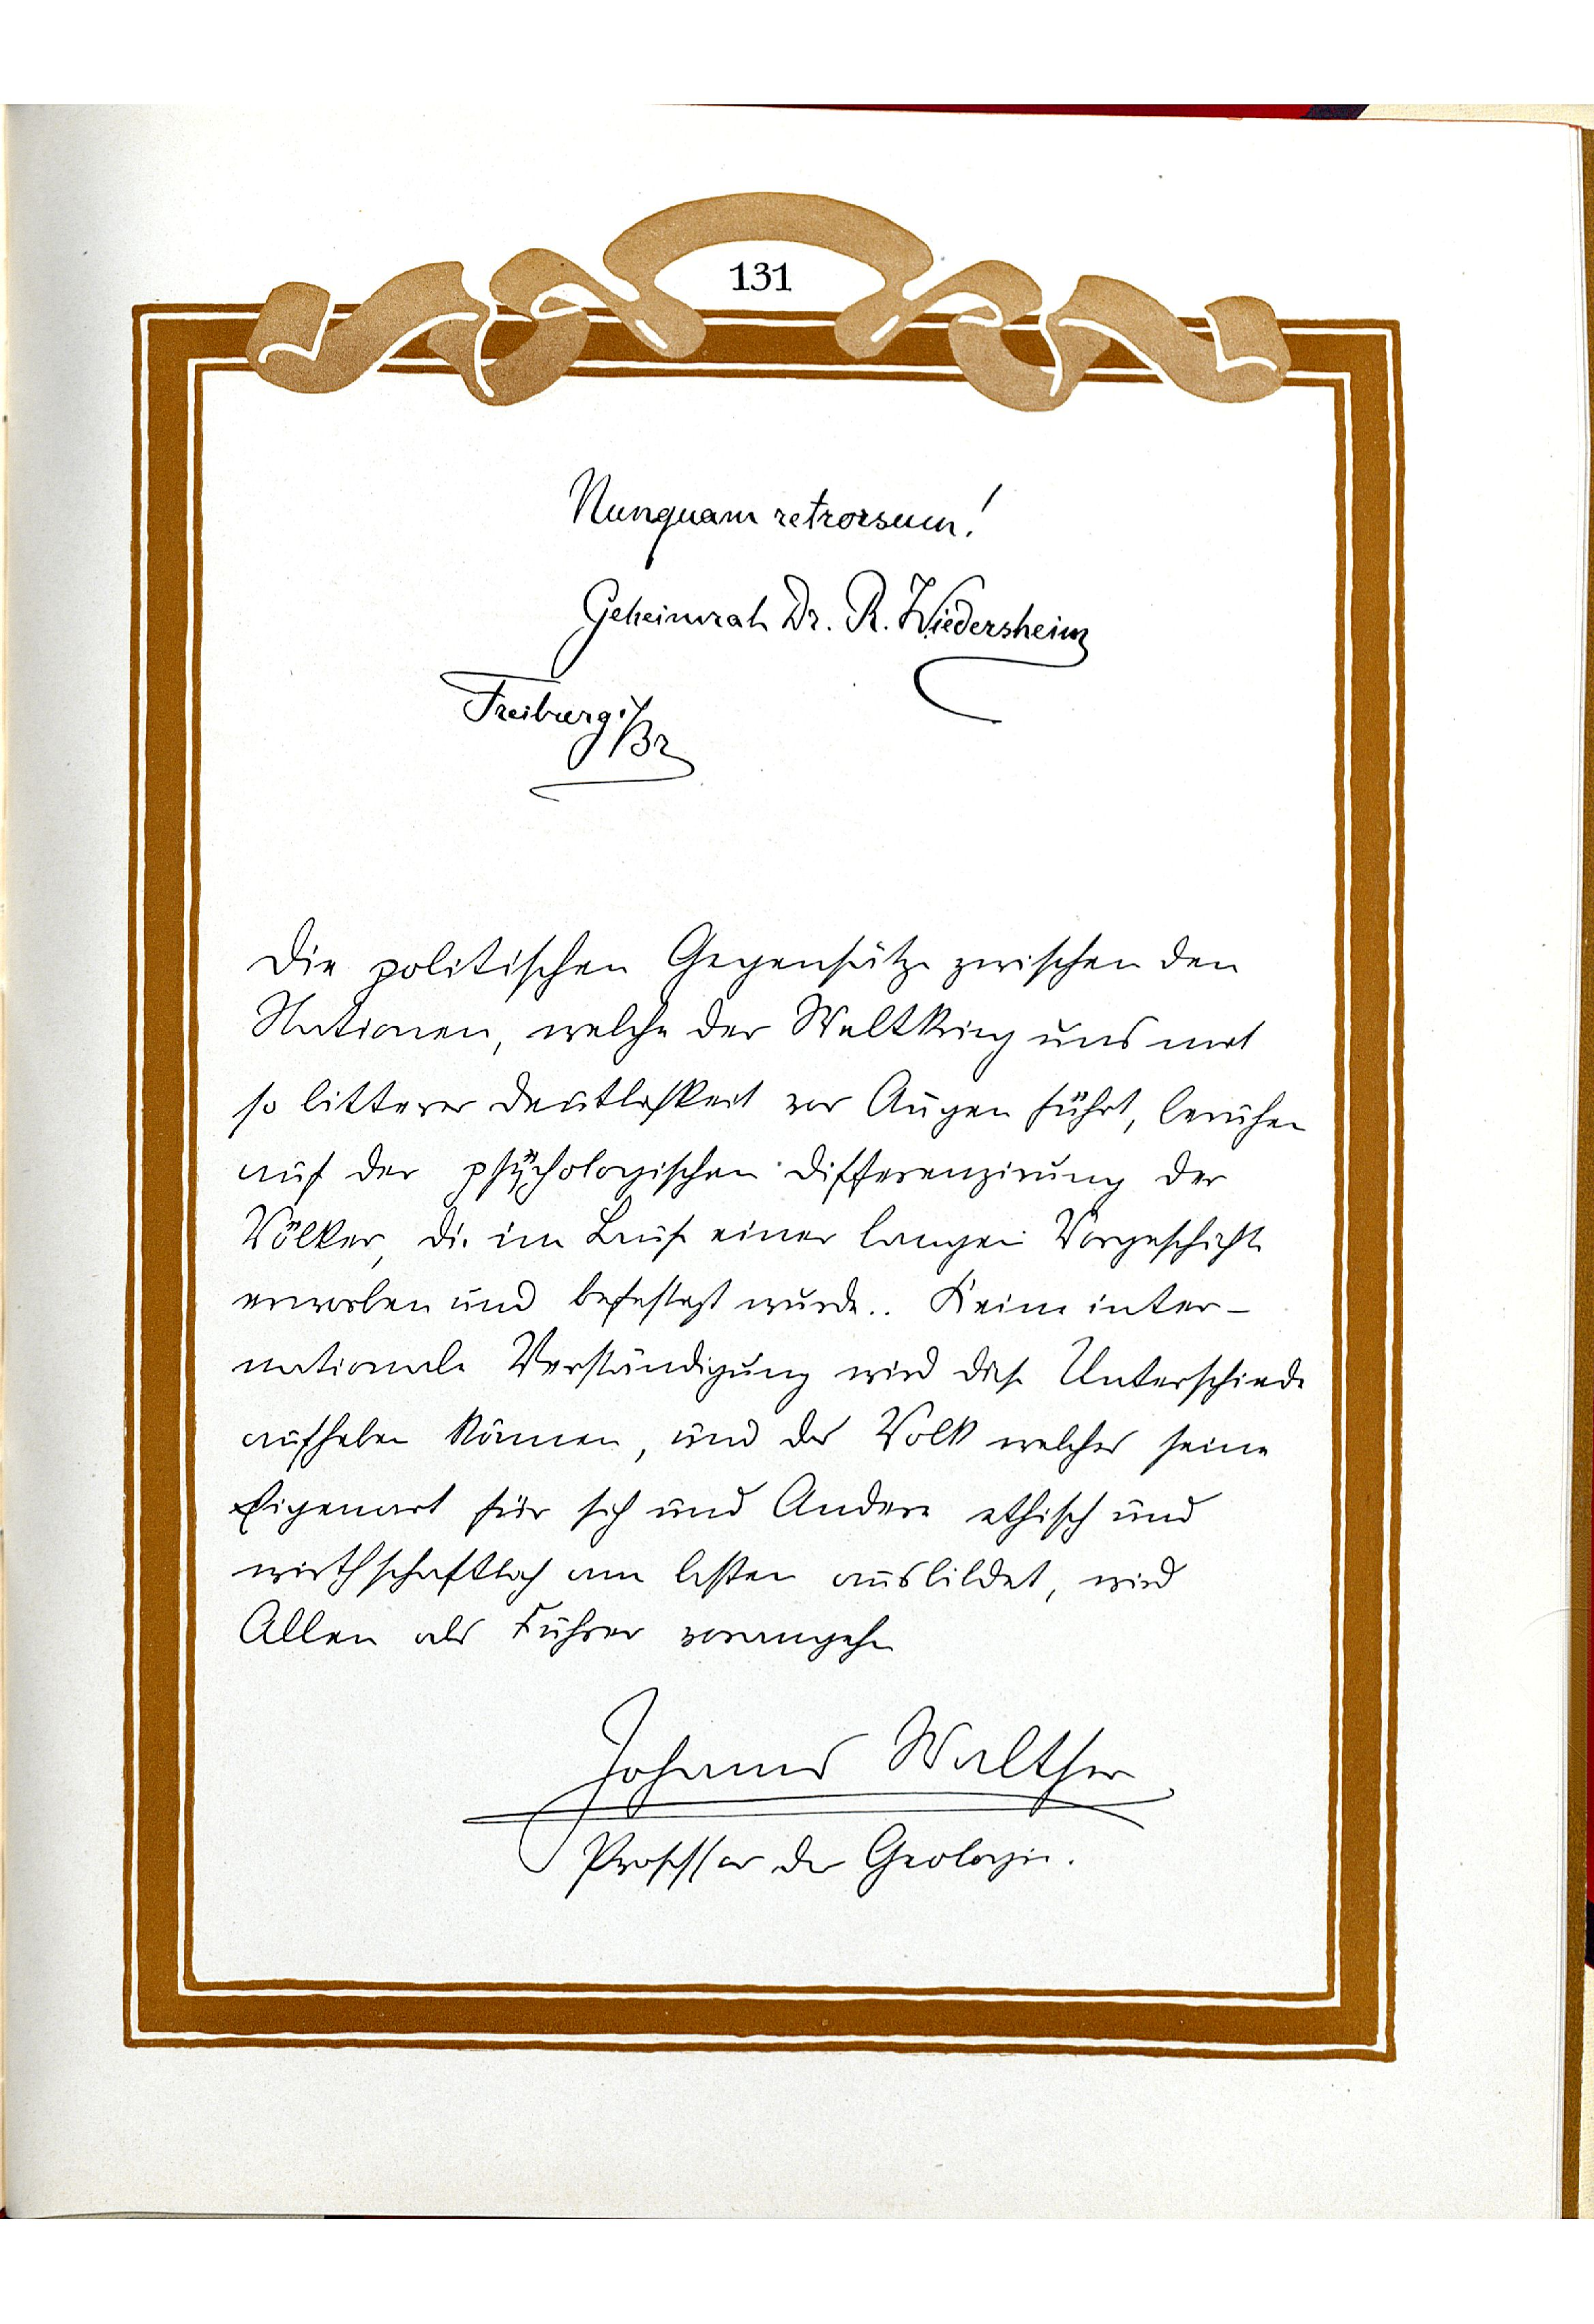 131
Nunquam retrorsum!
Geheimrat Dr. R. Wiedersheim
Freiburg i/Br
Die politischen Gegensätze zwischen den
Nationen, welche der Weltkrieg uns mit
so bitterer Deutlichkeit vor Augen führt, beruhen
auf der psychologischen Differenzirung der
Völker, die im Lauf einer langen Vorgeschichte
erworben und befestigt wurde.. Keine inter-
nationale Verständigung wird diese Unterschiede
aufheben können, und das Volk welches seine
Eigenart für sich und Andere ethisch und
wirthschaftlich am besten ausbildet, wird
Allen als Führer vorangehen
Johannes Walther
Professor der Geologie.